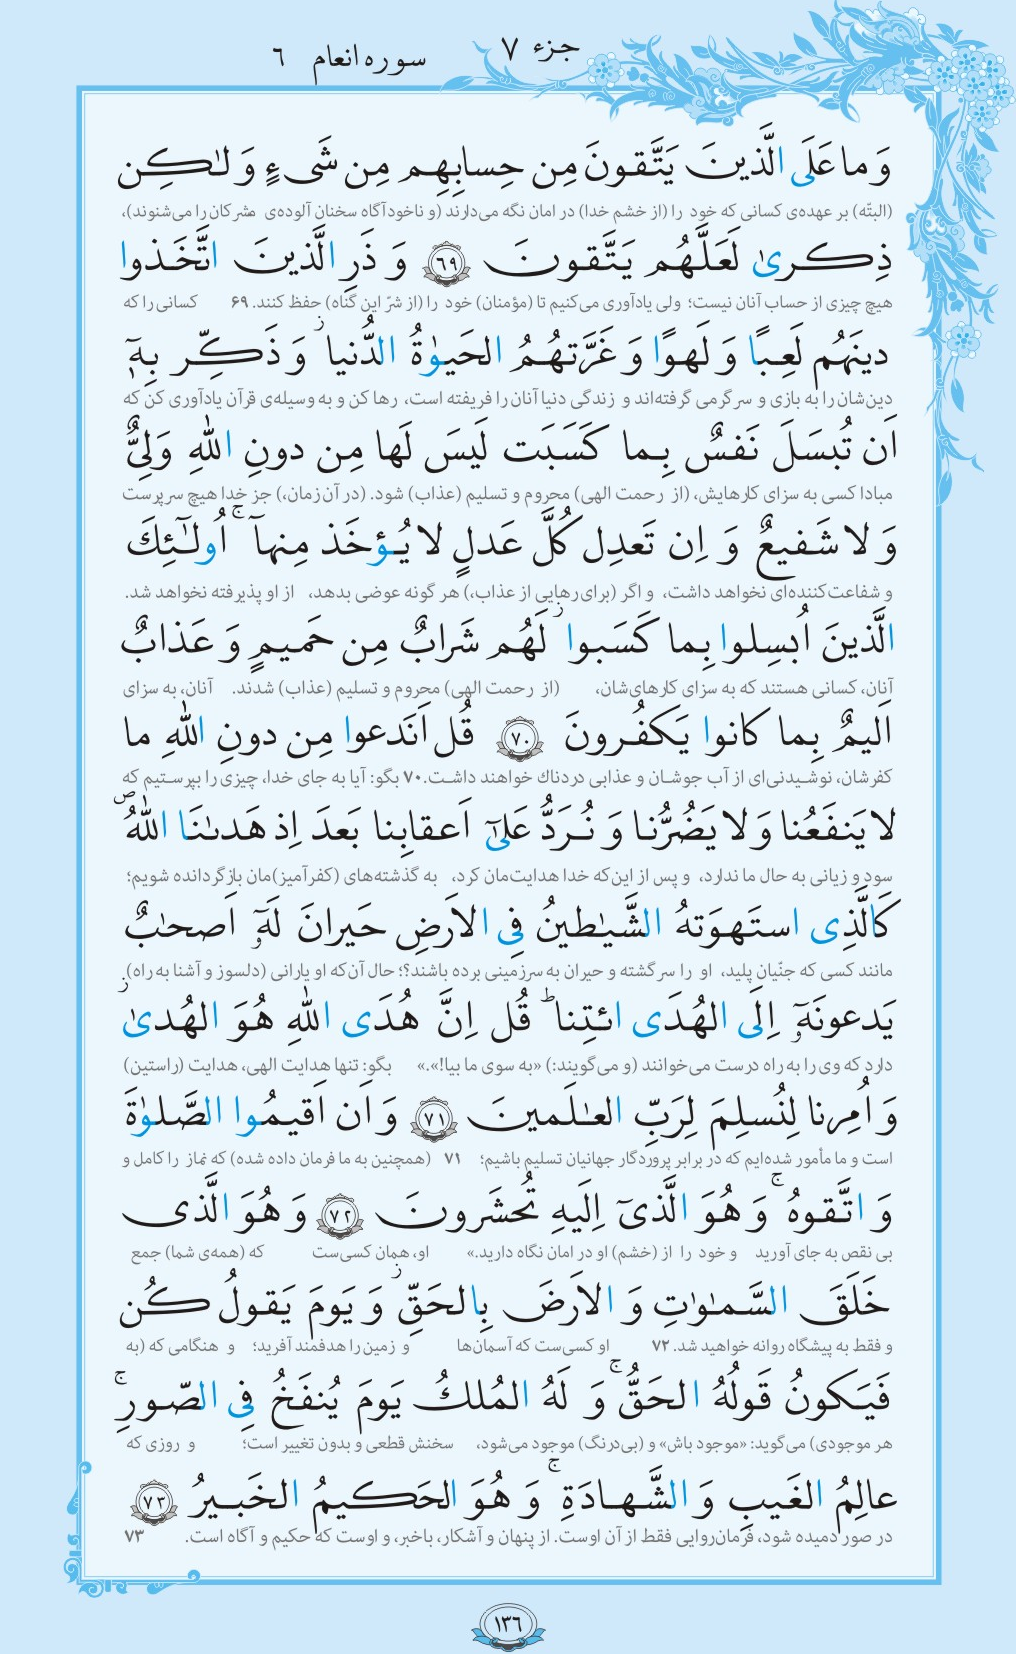 جزء ۷
سوره انعام ۶
وَ ما عَلَى الَّذينَ يَتَّقونَ مِن حِسابِهِم مِن شَىءٍ وَ لٰكِن
(البتّه) بر عهده‌ی کسانی که خود را (از خشم خدا) در امان نگه می‌دارند (و ناخودآگاه سخنان آلوده‌ی مشرکان را می‌شنوند)،
ذِكرىٰ لَعَلَّهُم يَتَّقونَ ﴿۶۹﴾ وَ ذَرِ الَّذينَ اتَّخَذوا
هیچ چیزی از حساب آنان نیست؛ ولی یادآوری می‌کنیم تا (مؤمنان) خود را (از شرّ این گناه) حفظ کنند. ۶۹ کسانی را که
دينَهُم لَعِبًا وَ لَهوًا وَ غَرَّتهُمُ الحَيوٰةُ الدُّنيا ۚ وَ ذَكِّر بِهٖٓ
دین‌شان را به بازی و سرگرمی گرفته‌اند و زندگی دنیا آنان را فریفته است، رها کن و به وسیله‌ی قرآن یادآوری کن که
اَن تُبسَلَ نَفسٌ بِما كَسَبَت لَيسَ لَها مِن دونِ اللّٰهِ وَلِىٌّ
مبادا کسی به سزای کارهایش، (از رحمت الهی) محروم و تسلیم (عذاب) شود. (در آن زمان،) جز خدا هیچ سرپرست
وَ لا شَفيعٌ وَ اِن تَعدِل كُلَّ عَدلٍ لا يُؤخَذ مِنهآ ۚ اُولٰٓئِكَ
و شفاعت‌کننده‌ای نخواهد داشت، و اگر (برای رهایی از عذاب،) هر گونه عوضی بدهد، از او پذیرفته نخواهد شد.
الَّذينَ اُبسِلوا بِما كَسَبوا ۖ لَهُم شَرابٌ مِن حَميمٍ وَ عَذابٌ
آنان، کسانی هستند که به سزای کارهای‌شان، (از رحمت الهی) محروم و تسلیم (عذاب) شدند. آنان، به سزای
اَليمٌ بِما كانوا يَكفُرونَ ﴿۷۰﴾ قُل اَنَدعوا مِن دونِ اللّٰهِ ما
کفرشان، نوشیدنی‌ای از آب جوشان و عذابی دردناك خواهند داشت. ۷۰ بگو: آیا به جای خدا، چیزی را بپرستیم که
لا يَنفَعُنا وَ لا يَضُرُّنا وَ نُرَدُّ عَلىٰٓ اَعقابِنا بَعدَ اِذ هَدىٰنَا اللّٰهُ
سود و زیانی به حال ما ندارد، و پس از این‌که خدا هدایت‌مان کرد، به گذشته‌های (کفرآمیز)مان بازگردانده شویم؛
كَالَّذِى استَهوَتهُ الشَّيٰطينُ فِى الاَرضِ حَيرانَ لَهٗٓ اَصحٰبٌ
مانند کسی که جنّیان پلید، او را سرگشته و حیران به سرزمینی برده باشند؟؛ حال آن‌که او یارانی (دلسوز و آشنا به راه)
يَدعونَهٗٓ اِلَى الهُدَى ائتِنا ؕ قُل اِنَّ هُدَى اللّٰهِ هُوَ الهُدىٰ
دارد که وی را به راه درست می‌خوانند (و می‌گویند:) «به سوی ما بیا!».» بگو: تنها هدایت الهی، هدایت (راستین)
وَ اُمِرنا لِنُسلِمَ لِرَبِّ العٰلَمينَ ﴿۷۱﴾ وَ اَن اَقيمُوا الصَّلوٰةَ
است و ما مأمور شده‌ایم که در برابر پروردگار جهانیان تسلیم باشیم؛ ۷۱ (همچنین به ما فرمان داده شده) که نماز را کامل و
وَ اتَّقوهُ ۚ وَ هُوَ الَّذىٓ اِلَيهِ تُحشَرونَ ﴿۷۲﴾ وَ هُوَ الَّذى
بی نقص به جای آورید و خود را از (خشم) او در امان نگاه دارید.» او، همان کسی‌ست که (همه‌ی شما) جمع
خَلَقَ السَّمٰوٰتِ وَ الاَرضَ بِالحَقِّ ۖ وَ يَومَ يَقولُ كُن
و فقط به پیشگاه روانه خواهید شد. ۷۲ او کسی‌ست که آسمان‌ها و زمین را هدفمند آفرید؛ و هنگامی که (به
فَيَكونُ قَولُهُ الحَقُّ ۚ وَ لَهُ المُلكُ يَومَ يُنفَخُ فِى الصّورِ ۚ
هر موجودی) می‌گوید: «موجود باش» و (بی‌درنگ) موجود می‌شود، سخنش قطعی و بدون تغییر است؛ و روزی که
عالِمُ الغَيبِ وَ الشَّهادَةِ ۚ وَ هُوَ الحَكيمُ الخَبيرُ ﴿۷۳﴾
در صور دمیده شود، فرمان‌روایی فقط از آن اوست. از پنهان و آشکار، باخبر، و اوست که حکیم و آگاه است. ۷۳
۱۳۶